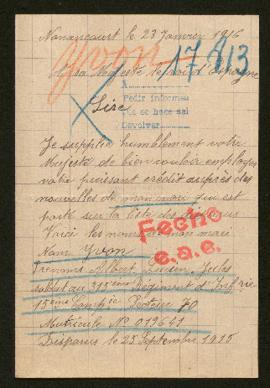 Nonancourt le 27 Janvier 1916
Yvon 17813
A Sa Majesté le roi d'Espagne
A
Pedir informes
Sire
Devolver
Je supplie humblement votre
Majesté de bien vouloir employer
votre puissant crédit auprès des
nouvelles de mon mari qui est
porté sur la liste des disparus
Voici les noms de mon mari
Fecho
Nom Yvon
e.a.e.
Prénoms Albert Lucien Jules
soldat au 315eme Régiment d'Infrie
15eme Compie Secteur 70
Matricule No 019641
Disparus le 25 Septembre 1915